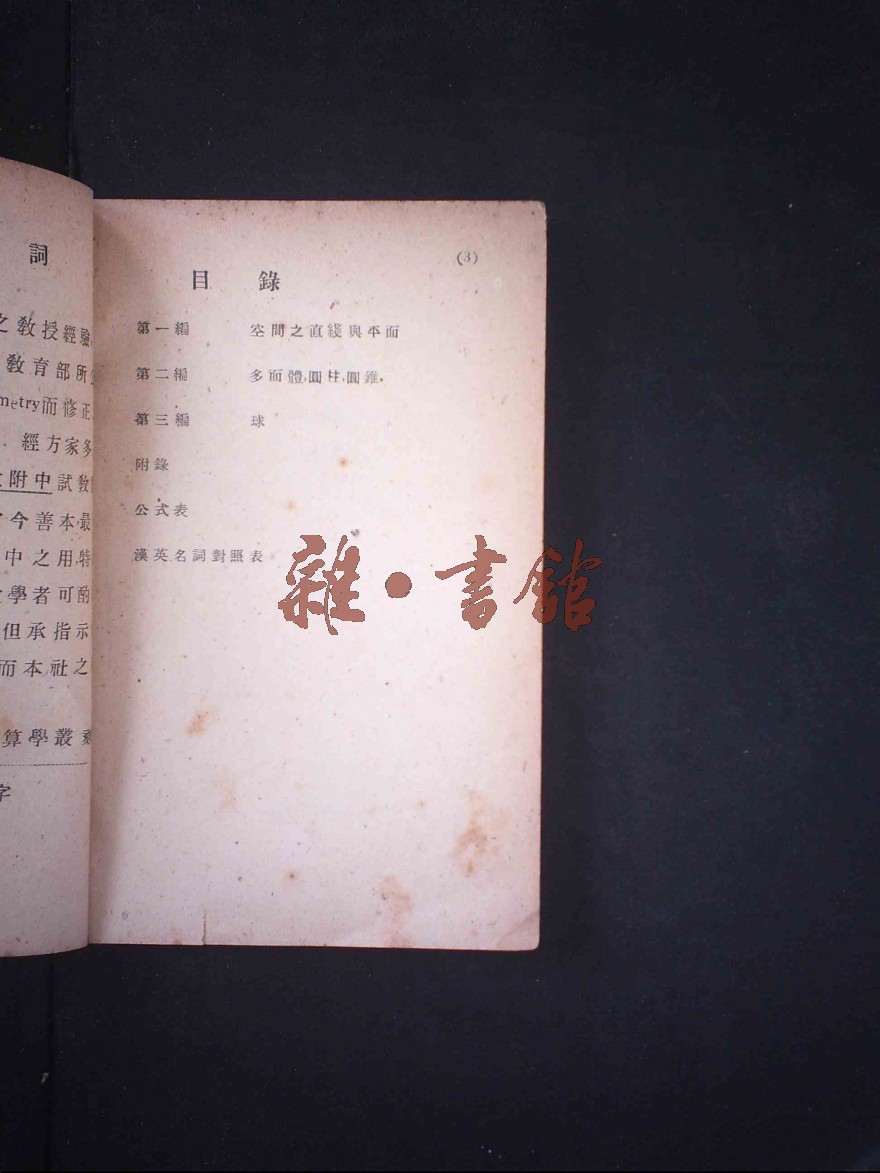 詞
之教授經驗
教育部所
metry而修正
經方家多
附中試敎
今善本最
中之用,特
學者可酌
但承指示
而本社之
算學叢刻
字
(3)
目 錄
第一編 空間之直綫與平面
第二編 多面體,圓柱,圓錐.
第三編 球
附錄
公式表
漢英名詞對照表
雜·書館